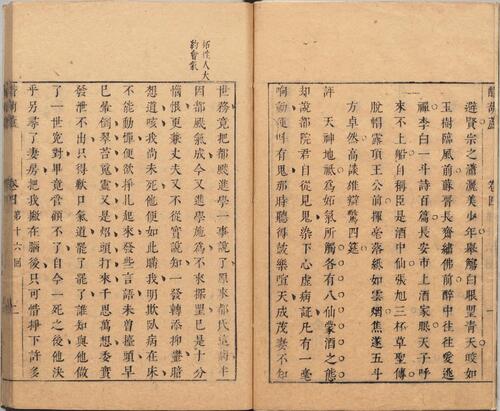 醋葫蘆 卷四
避賢宗之瀟灑美少年舉觴白眼望青天皎如
玉樹臨風前蘇晉長齋繡佛前醉中往往愛逃
禪李白一斗詩百篇長安市上酒家眠天子呼
來不上船自稱臣是酒中仙張旭三杯草聖傳
脫帽露頂王公前揮毫落紙如雲烟焦遂五斗
方卓然高談雄辯驚四筵
評 天神地祇為妬氣所觸各有八仙蒙酒之態
却說都院君自從見鬼染下心虛病証凡有一毫
响動便叫有鬼那時聽得鼓樂喧天成茂妻不知
妬性人大
約會氣
世務竟把都飈進學一事說了原來都氏這病半
因都飈氣成今又進學施為不來探望已是十分
惱恨更兼丈夫又不從實說知一發轉添抑鬱暗
想道咳我尚未死他便如此瞞我明欺臥病在床
不能動彈便欲掙扎起來發些言語未曾擡頭早
已暈倒又是焰頭打來千思萬想委實
發泄不出只得歎口氣道罷了罷了誰知與他做
了一世冤對畢竟管顧不了自今一死之後他決
乎另尋了妻房把我撇在腦後只可惜掙下許多
醋葫蘆 卷四 第十六回